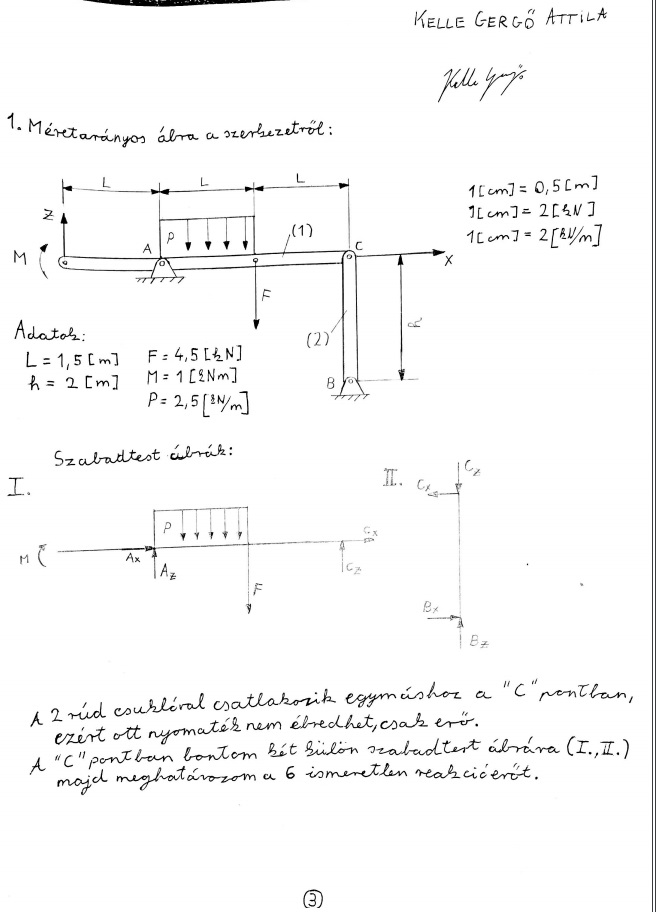 KELLE GERGŐ ATTILA
Kelle Gergő
1. Méretarányos ábra a szerkezetről:
L L L
1[cm]=0,5[m]
1[cm]=2[kN]
1[cm]=2[kN/m]
Z
M
A
P
(1)
C
X
F
(2)
h
B
Adatok:
L=1,5[m] F=4,5[kN]
h=2[m] M=1[kNm]
P=2,5[kN/m]
Szabadtest ábrák:
I.
M
Ax
Az
P
F
Cx
Cz
II.
Cx
Cz
Bx
Bz
A 2 rúd csuklóval csatlakozik egymáshoz a "C" pontban,
ezért ott nyomaték nem ébredhet, csak erő.
A "C" pontban bontom két külön szabadtest ábrára (I., II.)
majd meghatározom a 6 ismeretlen reakcióerőt.
3